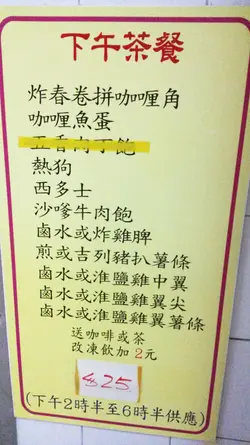 下午茶餐
炸春卷拼咖喱角
咖喱魚蛋
五香肉丁飽
熱狗
西多士
沙嗲牛肉飽
鹵水或炸雞脾
煎或吉列豬扒薯條
鹵水或淮鹽雞中翼
鹵水或淮鹽雞翼尖
鹵水或淮鹽雞翼薯條
送咖啡或茶
改凍飲加2元
$25
(下午2時半至6時半供應)